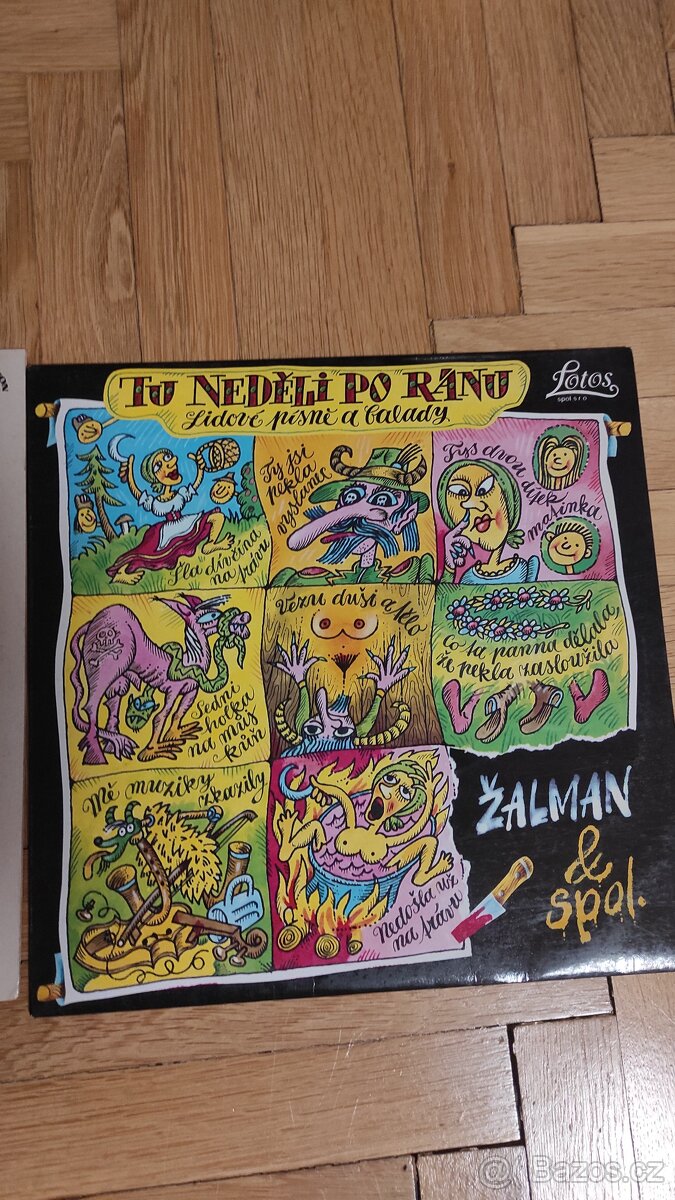 TU NEDĚLI PO RÁNU
Lidové písně a balady
Lotos
spol s r o
Šla divčina
na trávu
Ty jsi
pekla
vyslanec
Tys dvou dítek
mašinka
Sedni
holka
na můj
kůň
Vezmu duši a tělo
Co ta panna dělala,
že pekla zasloužila
Mé muziky
zkazily
Nedošla už
na trávu
ŽALMAN
&
spol.
Bazos.cz